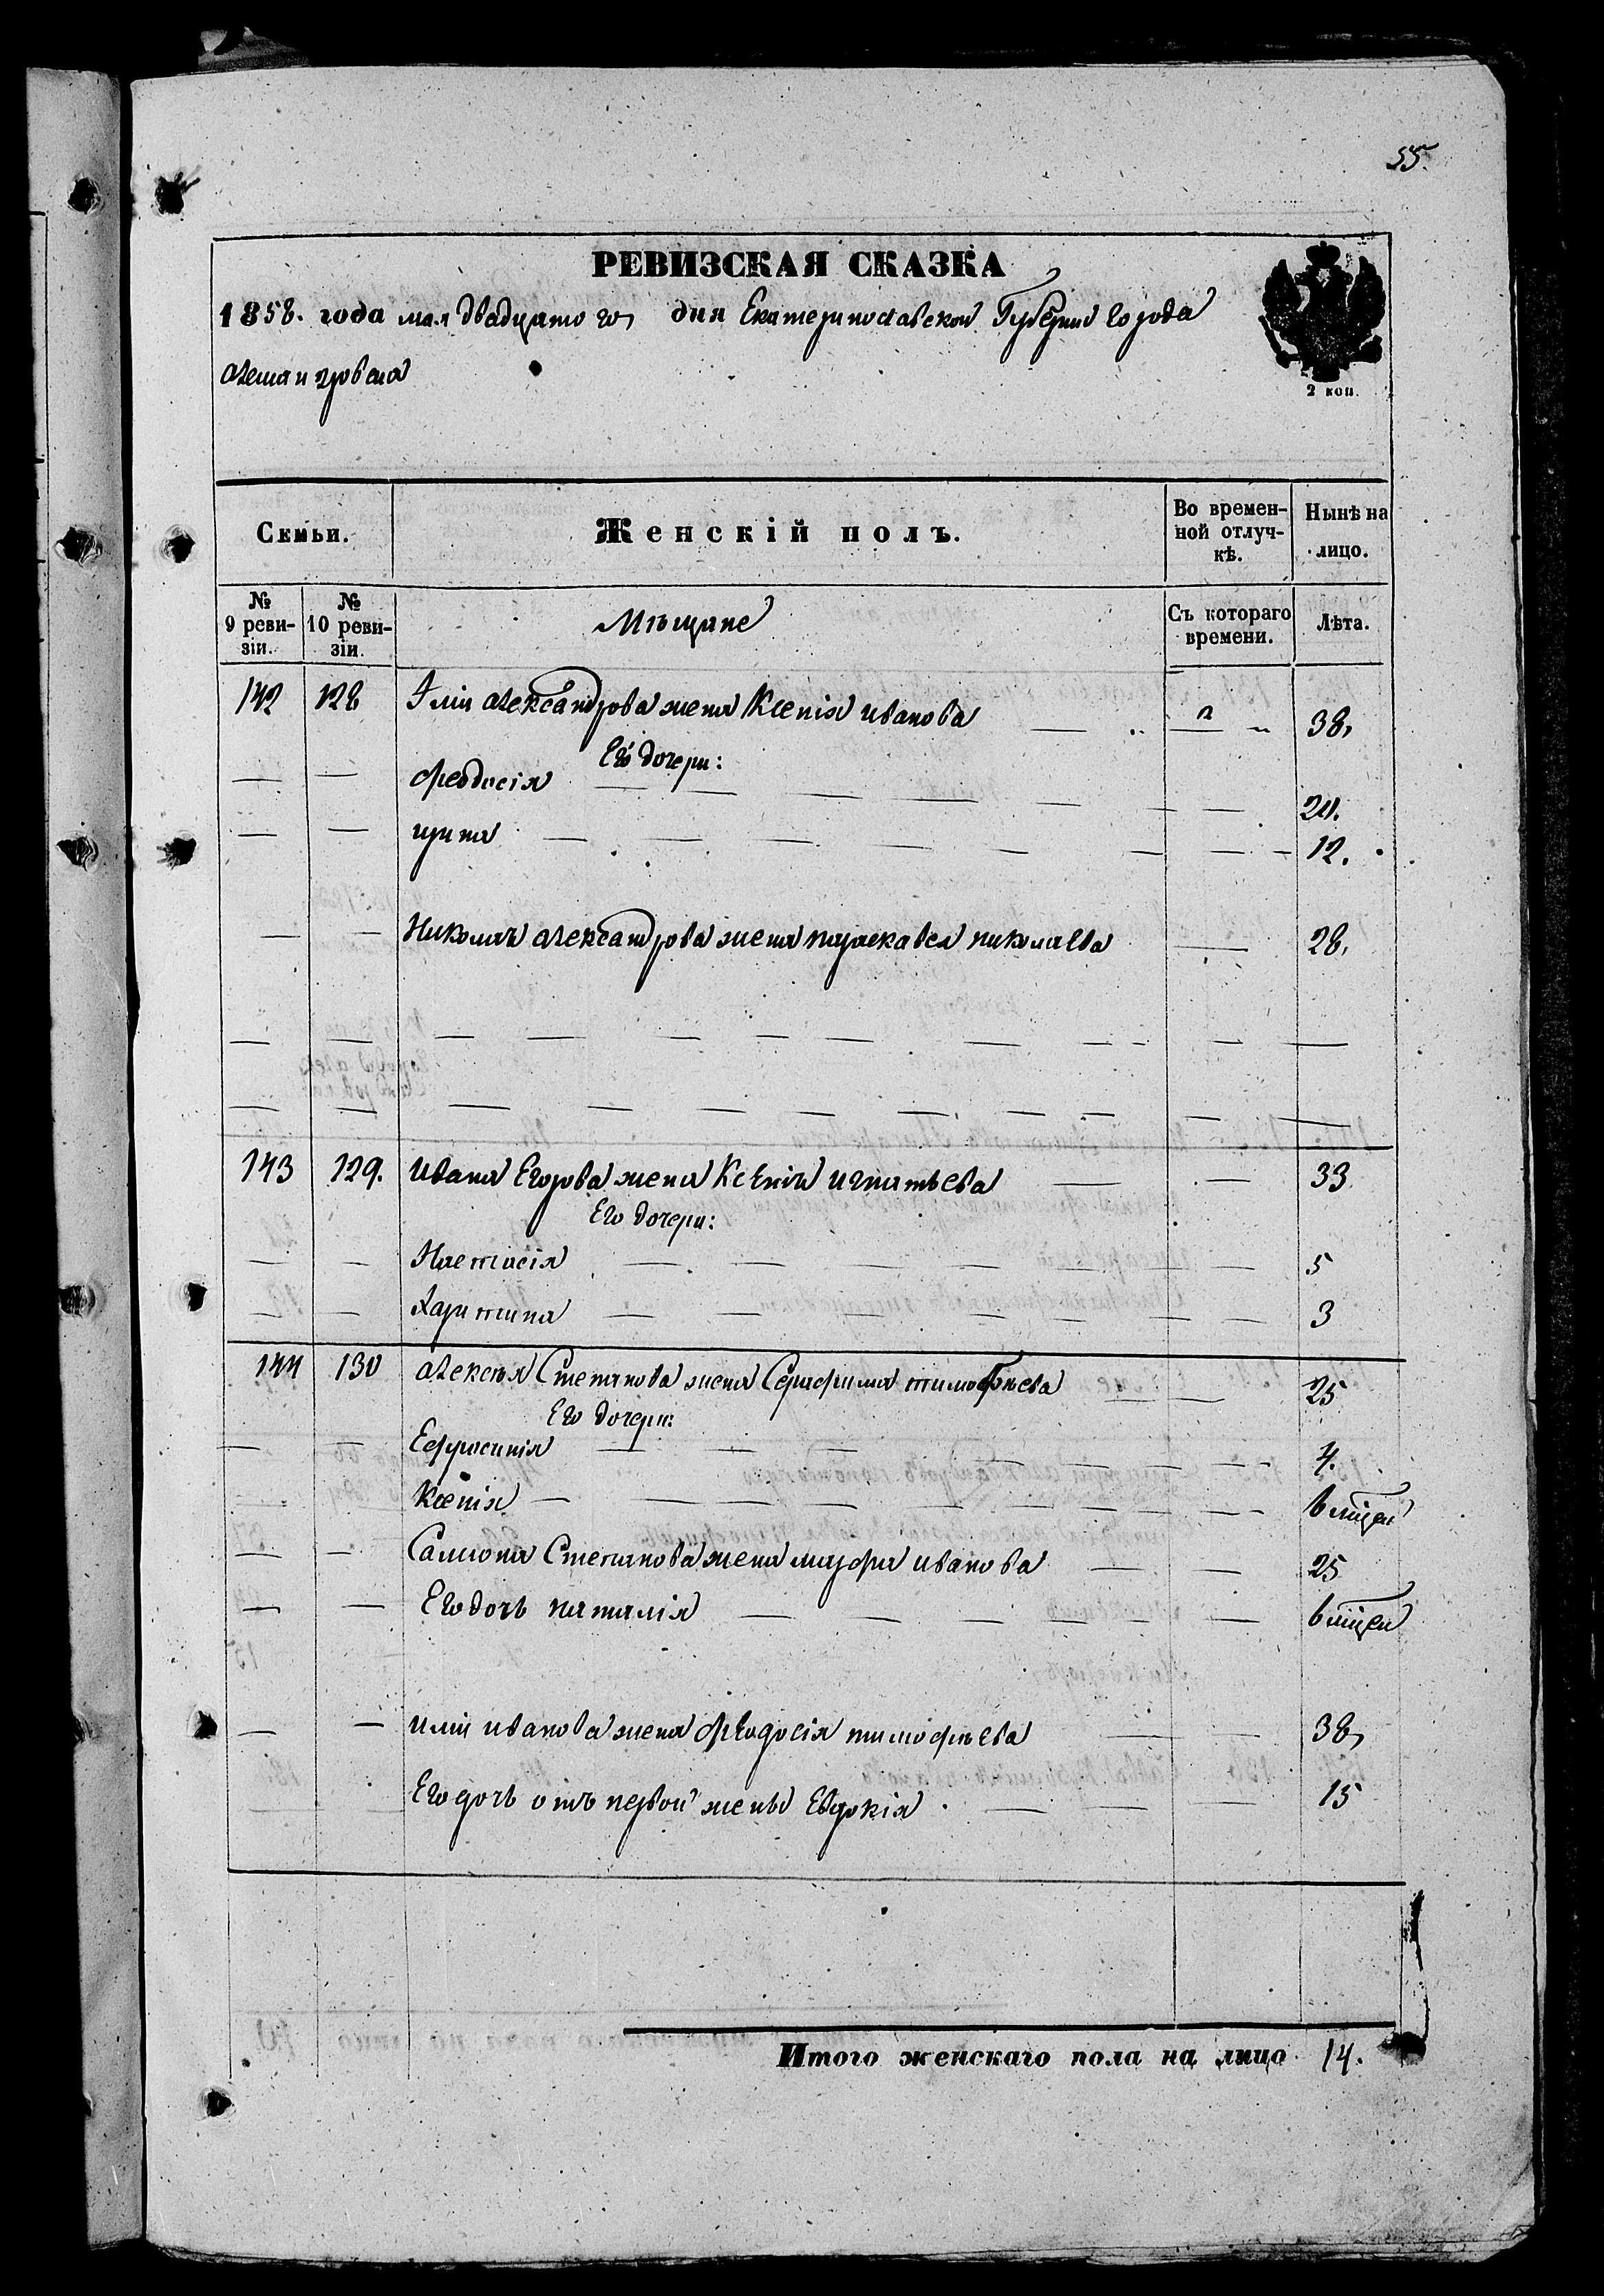 55.
РЕВИЗСКАЯ СКАЗКА
1858. года мая двадцатого дня Екатеринославской Губернии города
2 коп.
Семьи. Женскій полъ. Во времен-ной отлуч-кѣ. Ныне на лицо.
№ 9 реви-зіи. № 10 реви-зіи. Мѣщане Съ котораго времени. Лѣта.
142 128 Iліи александрова жена Ксенія иванова 38,
Его дочери:
феодосія 20.
ирина 12.
Николая александрова жена параскавея николаева 28,
143 129. ивана Егорова жена Ксенія игнатьева 33
Его дочери:
Настасія 5
Харитина 3
144 130 алексея Степанова жена Серафима тимофѣева 25
Его дочери:
Ефросинія 4.
Ксенія
Самсона Степанова жена марфа иванова 25
Его дочь наталія
иліи иванова жена феодосія тимофѣева 38,
Его дочь отъ первой жены Евдокія 15
Итого женскаго пола на лицо 14.